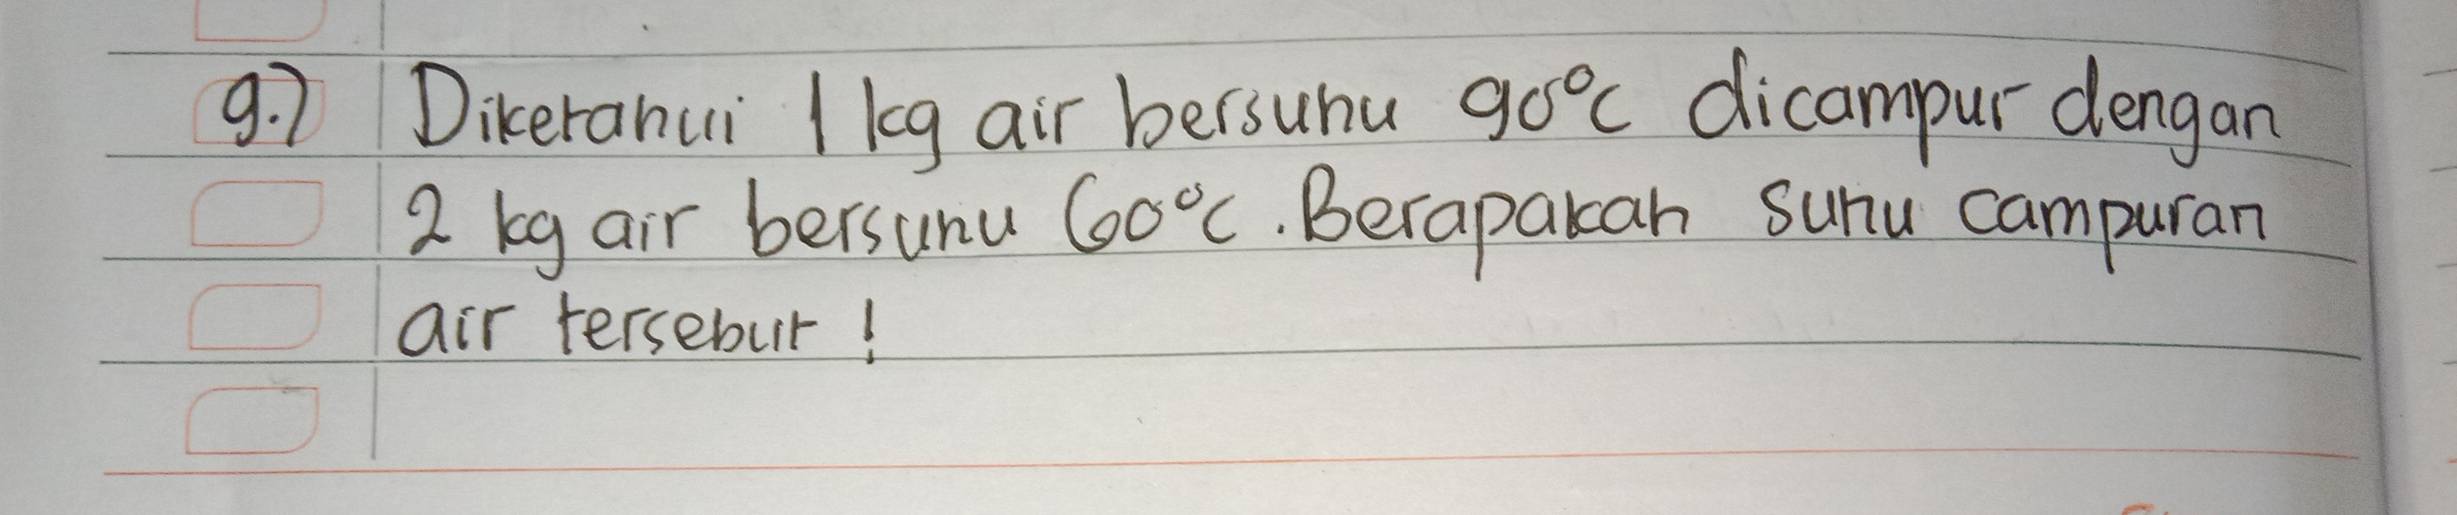 9.) Diketahui 1 kg air bersuhu 90°C dicampur dengan
2 kg air bersuhu 60°C. Berapakah suhu campuran
air tersebut !